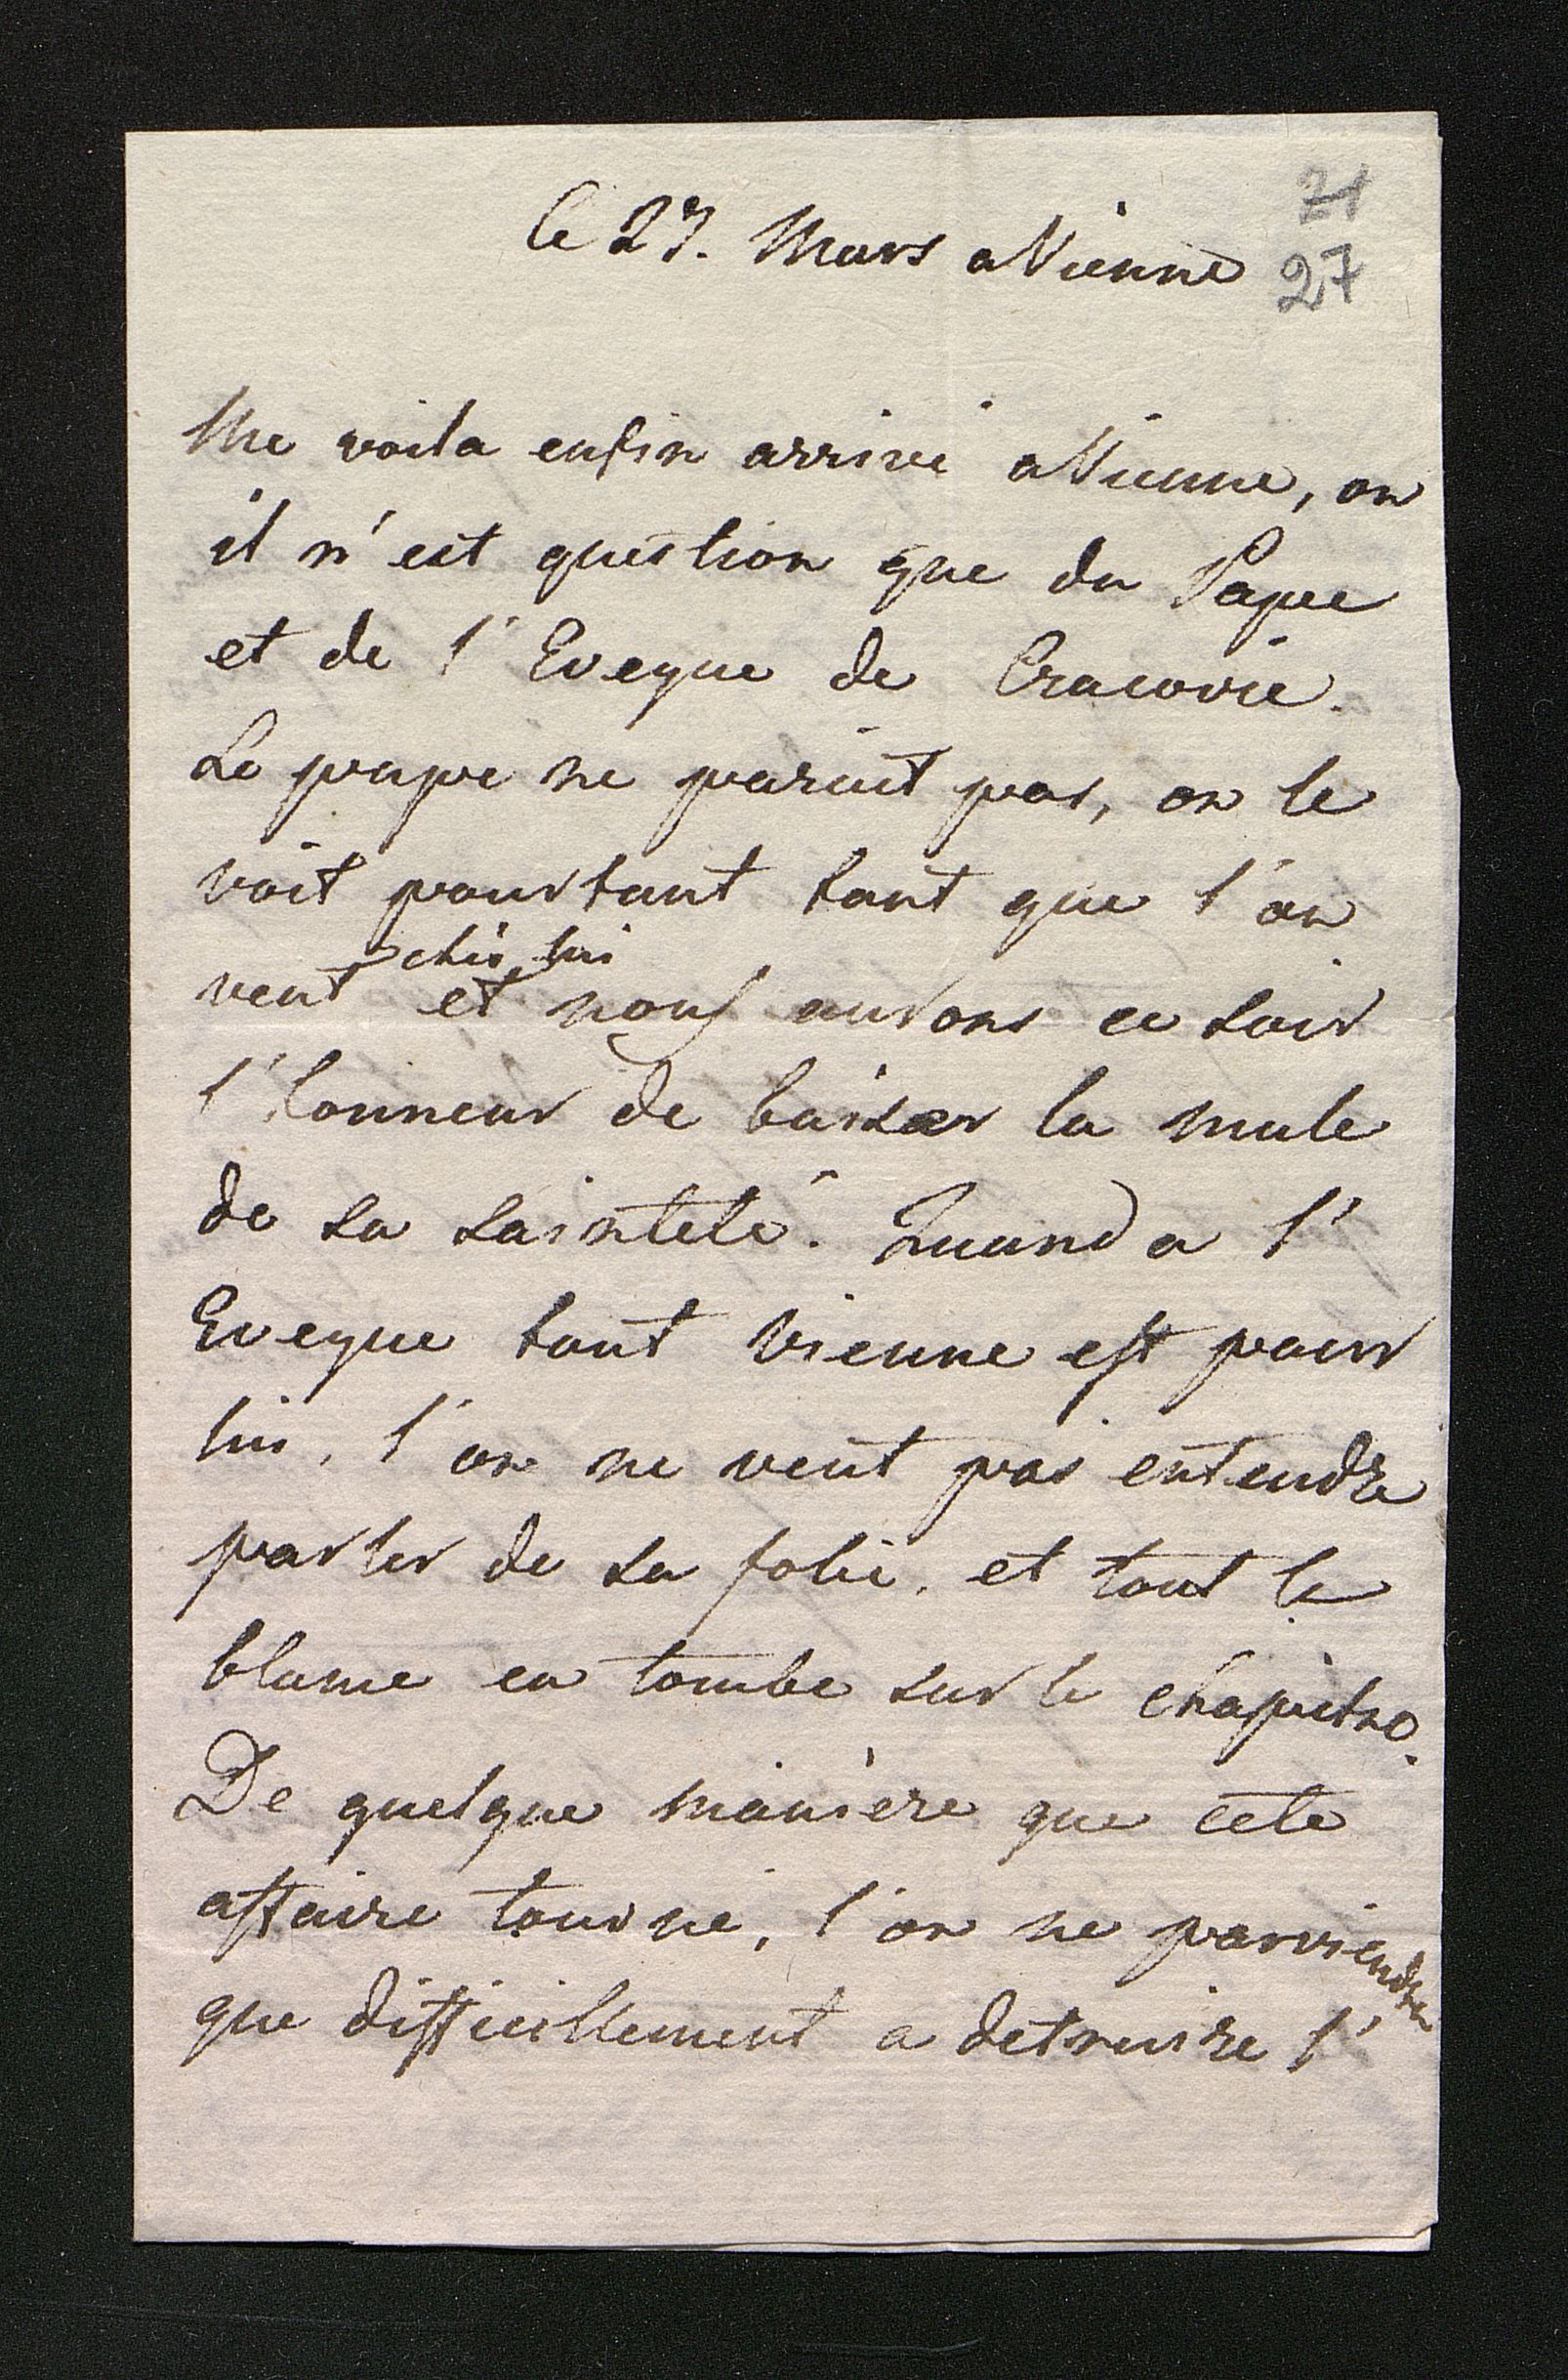 21
le 27. Mars a Vienne 27
Me voila enfin arrivé a Vienne, ou
il n'est question que du Pape
et de l'Eveque de Cracovie.
Le pape ne parait pas, on le
voit pourtant tant que l'on
veut chés lui et nous aurons ce soir
l'honneur de baiser la mule
de sa sainteté. Quand a l'
Eveque tout Vienne est pour
lui, l'on ne veut pas entendre
parler de sa folie, et tout le
blame en tombe sur le chapitre.
De quelque manière que cete
affaire tourne, l'on ne parviendra
que difficillement a detruire l'